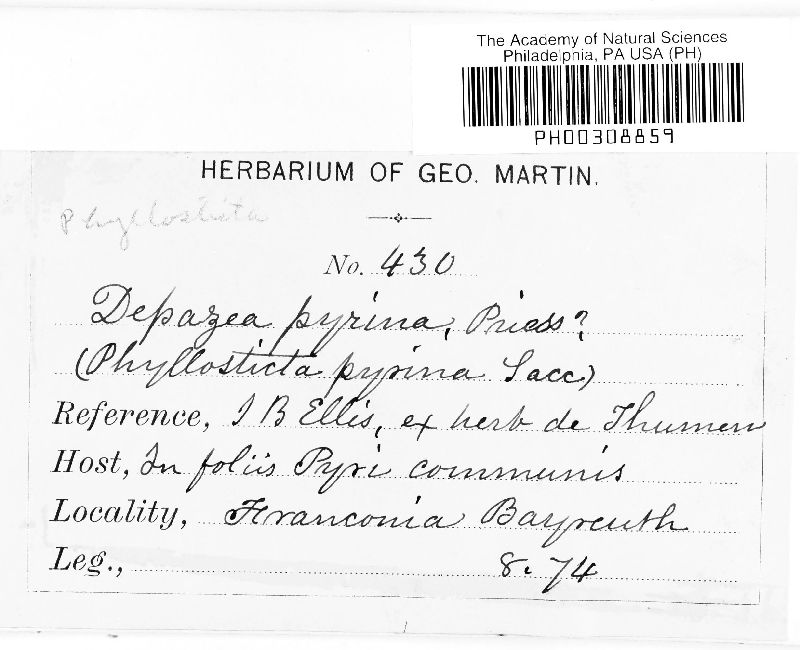 The Academy of Natural Sciences
Philadelphia, PA USA (PH)
PH00308859
HERBARIUM OF GEO. MARTIN.
Phyllosticta
No. 430
Depazea pyrina, Priess?
(Phyllosticta pyrina Sacc)
Reference, J B Ellis, ex herb de Thumen
Host, In foliis Pyri communis
Locality, Franconia Bayreuth
Leg., 8. 74